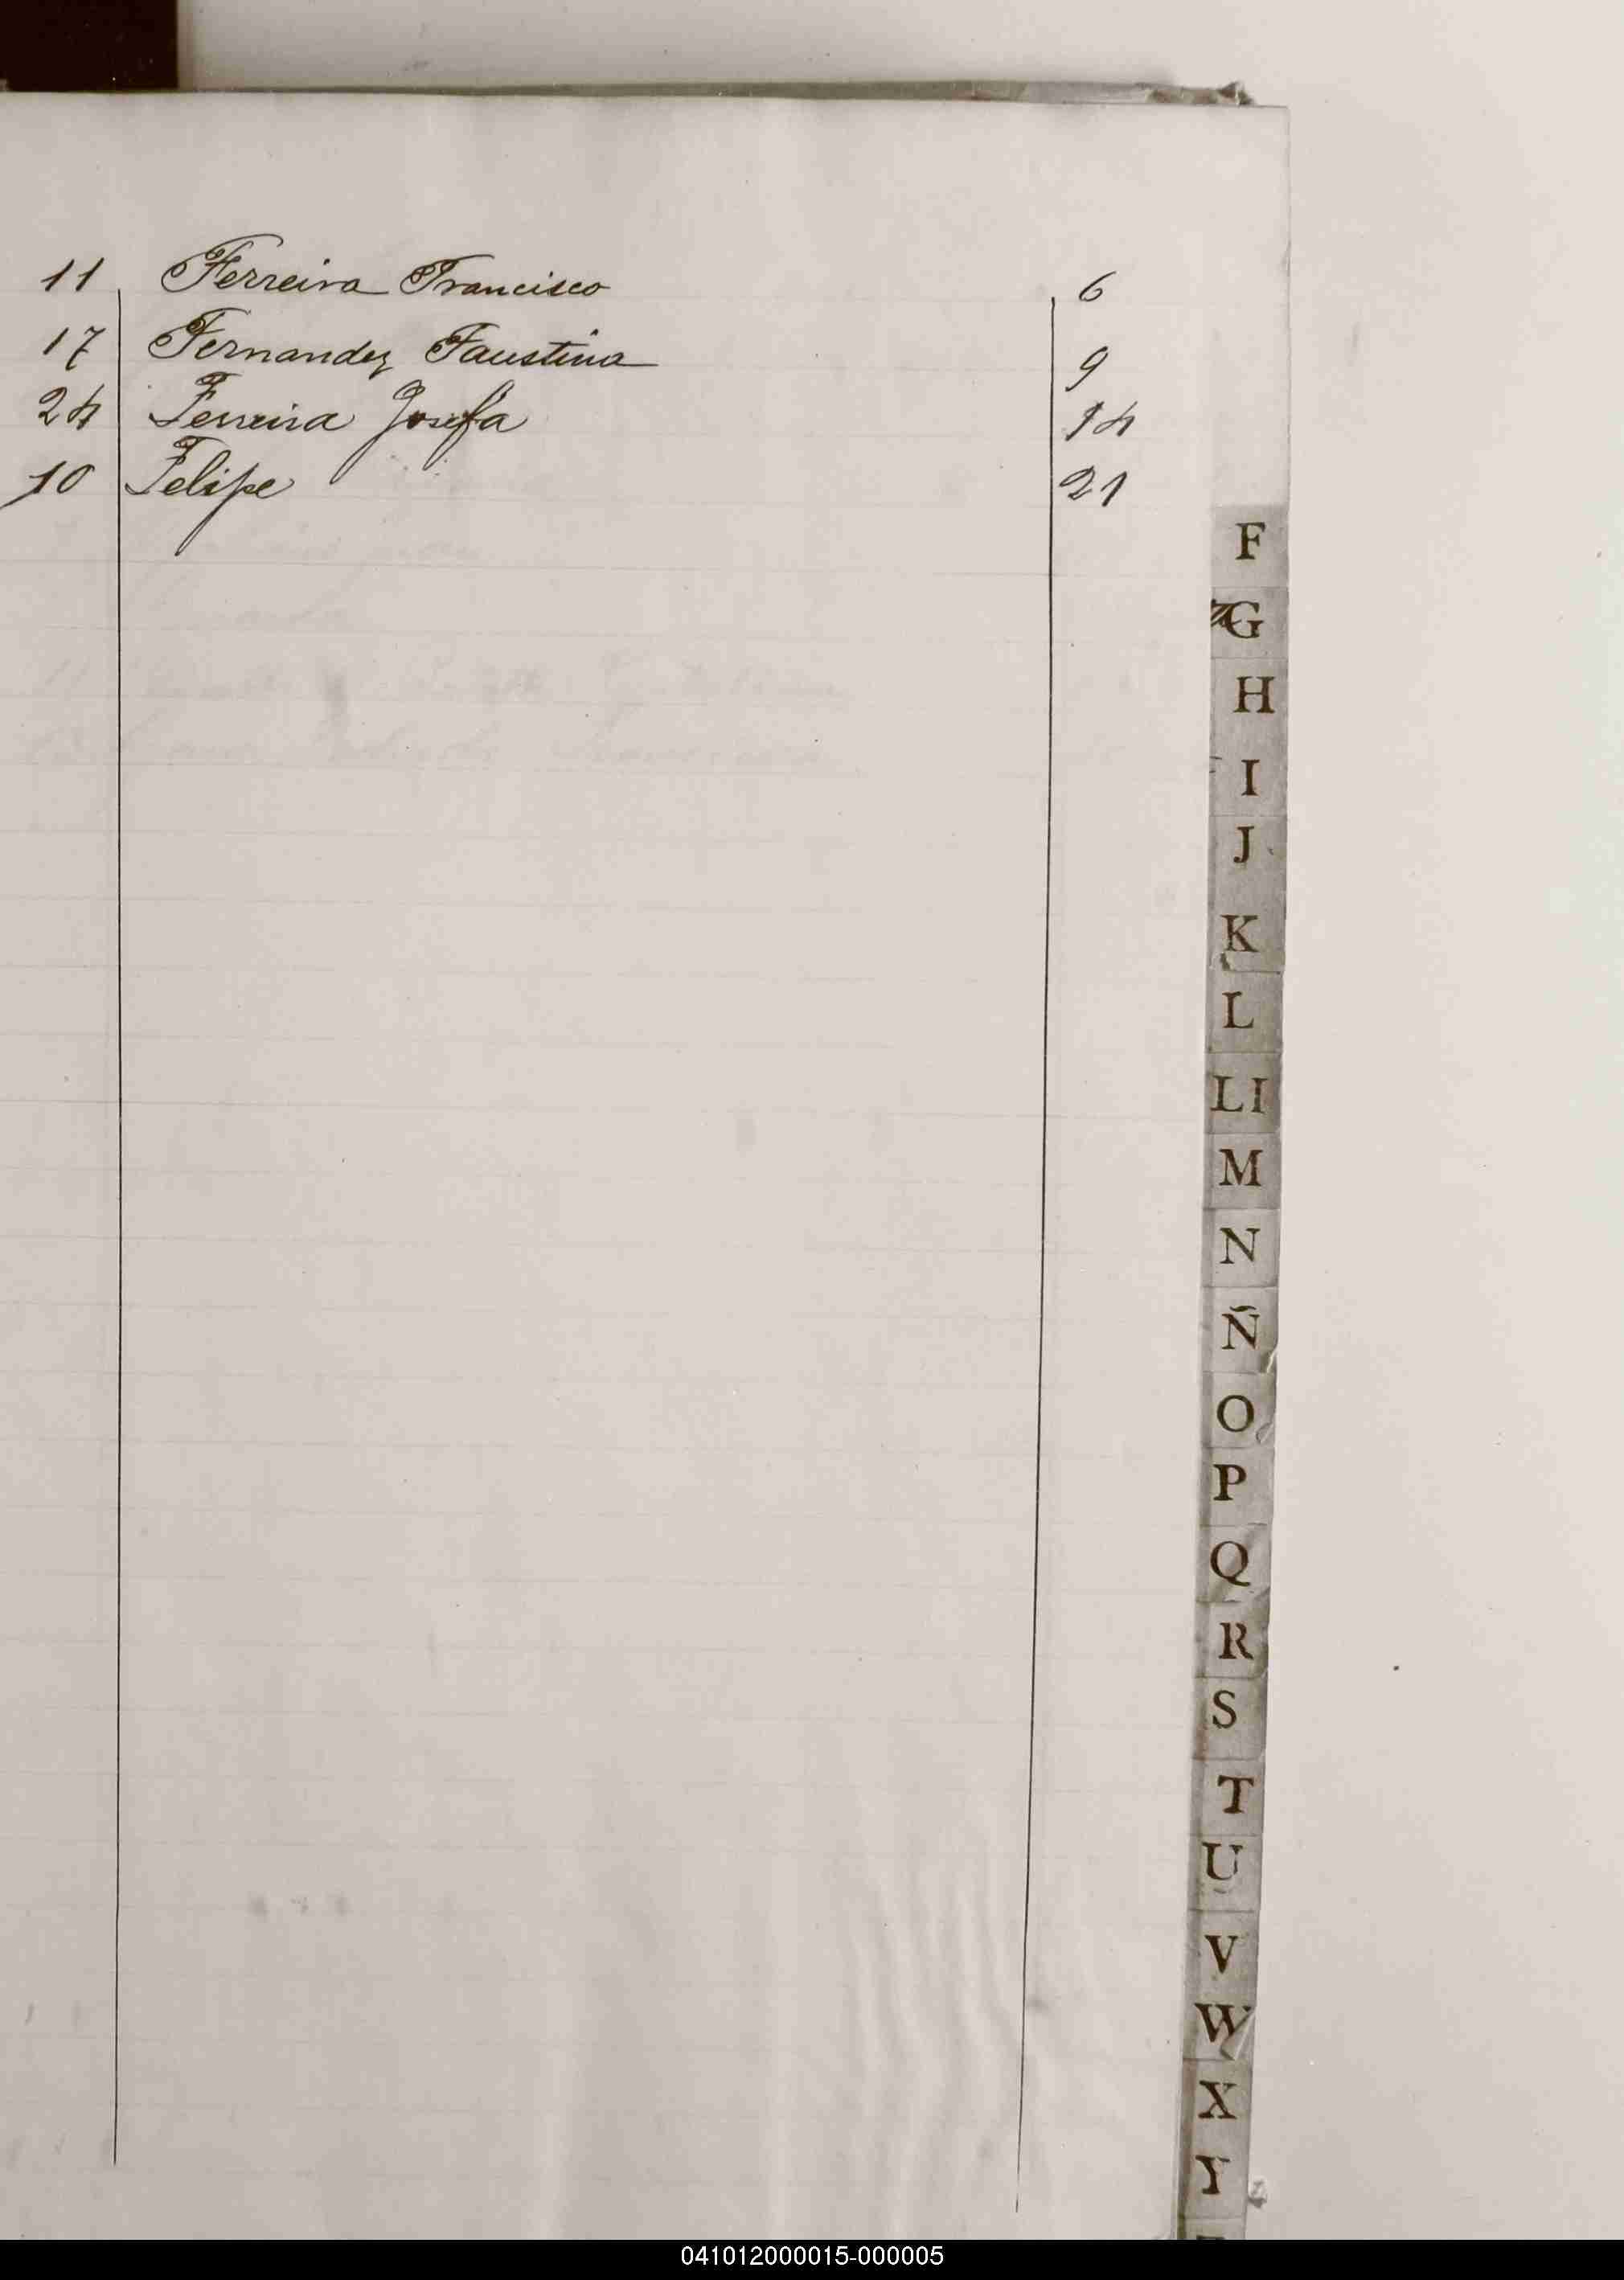 11 Ferreira Francisco 6
17 Fernandez Faustina 9
24 Ferreira Josefa 14
10 Felipe 21
F
G
H
I
J
K
L
Ll
M
N
Ñ
O
P
Q
R
S
T
U
V
W
X
Y
041012000015-000005